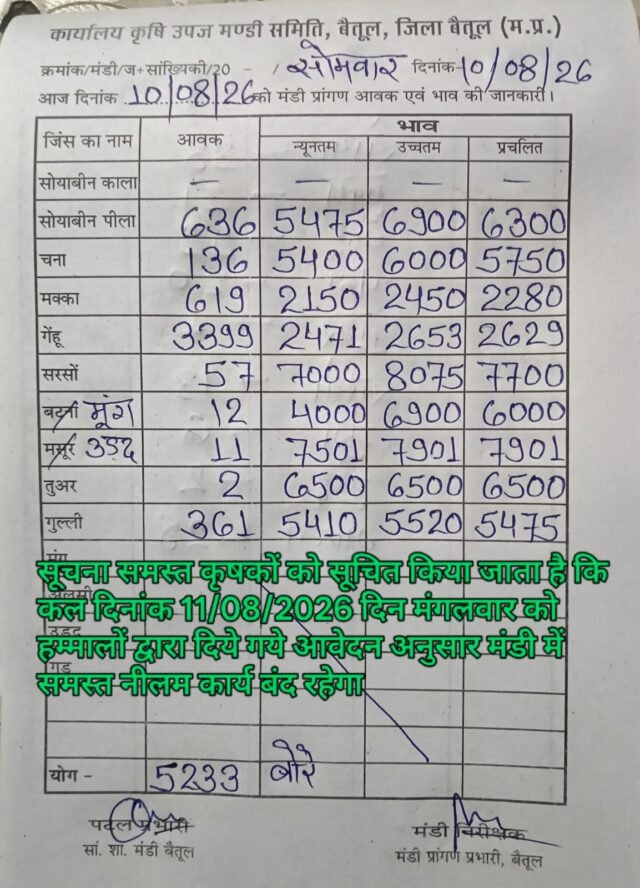 कार्यालय कृषि उपज मण्डी समिति, बैतूल, जिला बैतूल (म.प्र.)
क्रमांक/मंडी/ज+सांख्यिकी/20 - / सोमवार दिनांक 10/08/26
आज दिनांक 10/08/26 को मंडी प्रांगण आवक एवं भाव की जानकारी।
जिंस का नाम आवक भाव
न्यूनतम उच्चतम प्रचलित
सोयाबीन काला — — — —
सोयाबीन पीला 636 5475 6900 6300
चना 136 5400 6000 5750
मक्का 619 2150 2450 2280
गेंहू 3399 2471 2653 2629
सरसों 57 7000 8075 7700
बटनी मूंग 12 4000 6900 6000
मसूर उड़द 11 7501 7901 7901
तुअर 2 6500 6500 6500
गुल्ली 361 5410 5520 5475
मूंग
सूचना समस्त कृषकों को सूचित किया जाता है कि
अलसी
कल दिनांक 11/08/2026 दिन मंगलवार को
उड़द
हम्मालों द्वारा दिये गये आवेदन अनुसार मंडी में
गुड़
समस्त नीलम कार्य बंद रहेगा
योग - 5233 बोरे
प्रभारी मंडी निरीक्षक
सां. शा. मंडी बैतूल मंडी प्रांगण प्रभारी, बैतूल